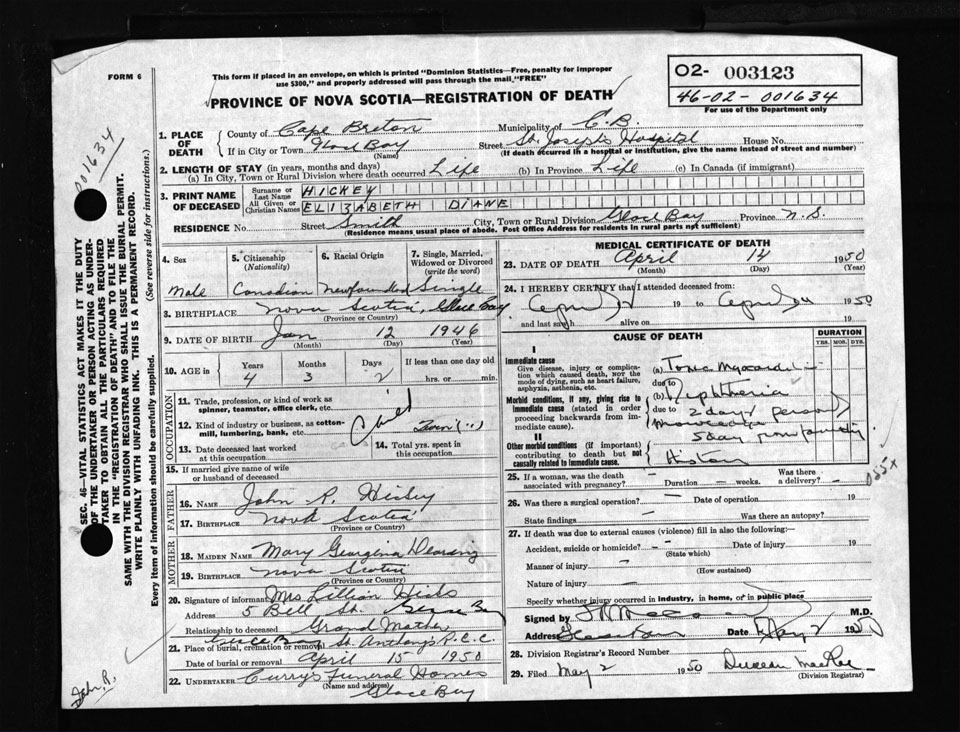 FORM 6
This form if placed in an envelope, on which is printed "Dominion Statistics—Free, penalty for improper
use $300," and properly addressed will pass through the mail, "FREE"
PROVINCE OF NOVA SCOTIA—REGISTRATION OF DEATH
O2- 003123
46-02-001634
For use of the Department only
001634
1. PLACE OF DEATH
County of Cape Breton Municipality of C.B.
If in City or Town Glace Bay Street St. Joseph's Hospital House No.
(Name) (If death occurred in a hospital or institution, give the name instead of street and number)
2. LENGTH OF STAY (in years, months and days)
(a) In City, Town or Rural Division where death occurred Life (b) In Province Life (c) In Canada (if immigrant)
3. PRINT NAME OF DECEASED
Surname or Last Name HICKEY
All Given or Christian Names ELIZABETH DIANE
RESIDENCE No. Street Smith City, Town or Rural Division Glace Bay Province N.S.
(Residence means usual place of abode. Post Office Address for residents in rural parts not sufficient)
4. Sex 5. Citizenship (Nationality) 6. Racial Origin 7. Single, Married, Widowed or Divorced (write the word)
Male Canadian Newfoundland Single
8. BIRTHPLACE Nova Scotia, Glace Bay
(Province or Country)
9. DATE OF BIRTH Jan 12 1946
(Month) (Day) (Year)
10. AGE in Years Months Days If less than one day old
4 3 2 hrs. or min.
OCCUPATION
11. Trade, profession, or kind of work as
spinner, teamster, office clerk, etc.
12. Kind of industry or business, as cotton-
mill, lumbering, bank, etc.
Child
13. Date deceased last worked
at this occupation
14. Total yrs. spent in
this occupation
15. If married give name of wife
or husband of deceased
FATHER
16. NAME John R. Hickey
17. BIRTHPLACE Nova Scotia
(Province or Country)
MOTHER
18. MAIDEN NAME Mary Georgina
19. BIRTHPLACE Nova Scotia
(Province or Country)
20. Signature of informant Mrs Lillian
Address 5 Bell St. Glace Bay
Relationship to deceased Grand Mother
21. Place of burial, cremation or removal Glace Bay St. Anthony's R.C.C.
Date of burial or removal April 15 1950
22. UNDERTAKER Curry's Funeral Homes
(Name and address) Glace Bay
MEDICAL CERTIFICATE OF DEATH
23. DATE OF DEATH April 14 1950
(Month) (Day) (Year)
24. I HEREBY CERTIFY that I attended deceased from
April 19 to April 1950
and last saw h alive on 19
CAUSE OF DEATH DURATION
YRS. MOS. DYS.
I
Immediate cause
Give disease, injury or complica-
tion which caused death, NOT the
mode of dying, such as heart failure,
asphyxia, asthenia, etc.
(a) Toxic
due to
Morbid conditions, if any, giving rise to
immediate cause (stated in order
proceeding backwards from im-
mediate cause).
(b) Diphtheria
due to 2 days personal
knowledge
5 day from family
II
Other morbid conditions (if important)
contributing to death but not
causally related to immediate cause.
History
25. If a woman, was the death
associated with pregnancy? Duration — weeks. Was there
a delivery?
26. Was there a surgical operation? — Date of operation 19
State findings Was there an autopsy?
27. If death was due to external causes (violence) fill in also the following:—
Accident, suicide or homicide? Date of injury 19
(State which)
Manner of injury —
(How sustained)
Nature of injury —
Specify whether injury occurred in industry, in home, or in public place
Signed by M.D.
Address Glace Bay Date May 2 1950
28. Division Registrar's Record Number
29. Filed May 2 1950 Duncan MacRae
(Division Registrar)
SEC. 46—VITAL STATISTICS ACT MAKES IT THE DUTY
OF THE UNDERTAKER OR PERSON ACTING AS UNDER-
TAKER TO OBTAIN ALL THE PARTICULARS REQUIRED
IN THE "REGISTRATION OF DEATH" AND TO FILE THE
SAME WITH THE DIVISION REGISTRAR WHO SHALL ISSUE THE BURIAL PERMIT.
WRITE PLAINLY WITH UNFADING INK. THIS IS A PERMANENT RECORD.
Every item of information should be carefully supplied. (See reverse side for instructions.)
John, R.